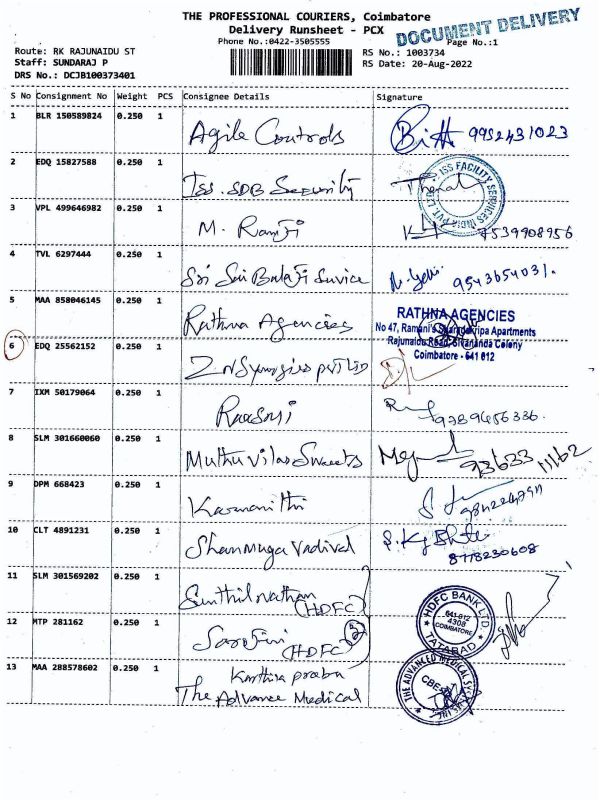 THE PROFESSIONAL COURIERS, Coimbatore
Delivery Runsheet - PCX
DOCUMENT DELIVERY
Phone No.:0422-3505555
Page No.:1
Route: RK RAJUNAIDU ST
RS No.: 1003734
Staff: SUNDARAJ P
RS Date: 20-Aug-2022
DRS No.: DCJB100373401
S No Consignment No Weight PCS Consignee Details Signature
1 BLR 150589824 0.250 1 Agile Controls 9952431023
2 EDQ 15827588 0.250 1 Iss. SDB Security
ISS FACILITY SERVICES INDIA PVT. LTD
3 VPL 499646982 0.250 1 M. Ramji 7539908956
4 TVL 6297444 0.250 1 Sri Sai Balaji Survice 9543654031.
5 MAA 858046145 0.250 1 Rathna Agencies
RATHNA AGENCIES
No 47, Ramani's Apartments
Rajunaidu Road, Sivananda Colony
Coimbatore - 641 012
6 EDQ 25562152 0.250 1 ZN Synergies pvt Ltd
7 IXM 50179064 0.250 1 9789456336.
8 SLM 301660060 0.250 1 Muthu Vilas Sweets 93633 11162
9 DPM 668423 0.250 1
10 CLT 4891231 0.250 1 Shanmuga Vadivel 8778230608
11 SLM 301569202 0.250 1 Senthilnathan
(HDFC)
12 MTP 281162 0.250 1 Sarojini (HDFC) 2
HDFC BANK LTD.
641 012
4308
COIMBATORE
TATABAD
13 MAA 288578602 0.250 1 Karthika praba
The Advance Medical
THE ADVANCED MEDICAL
CBE